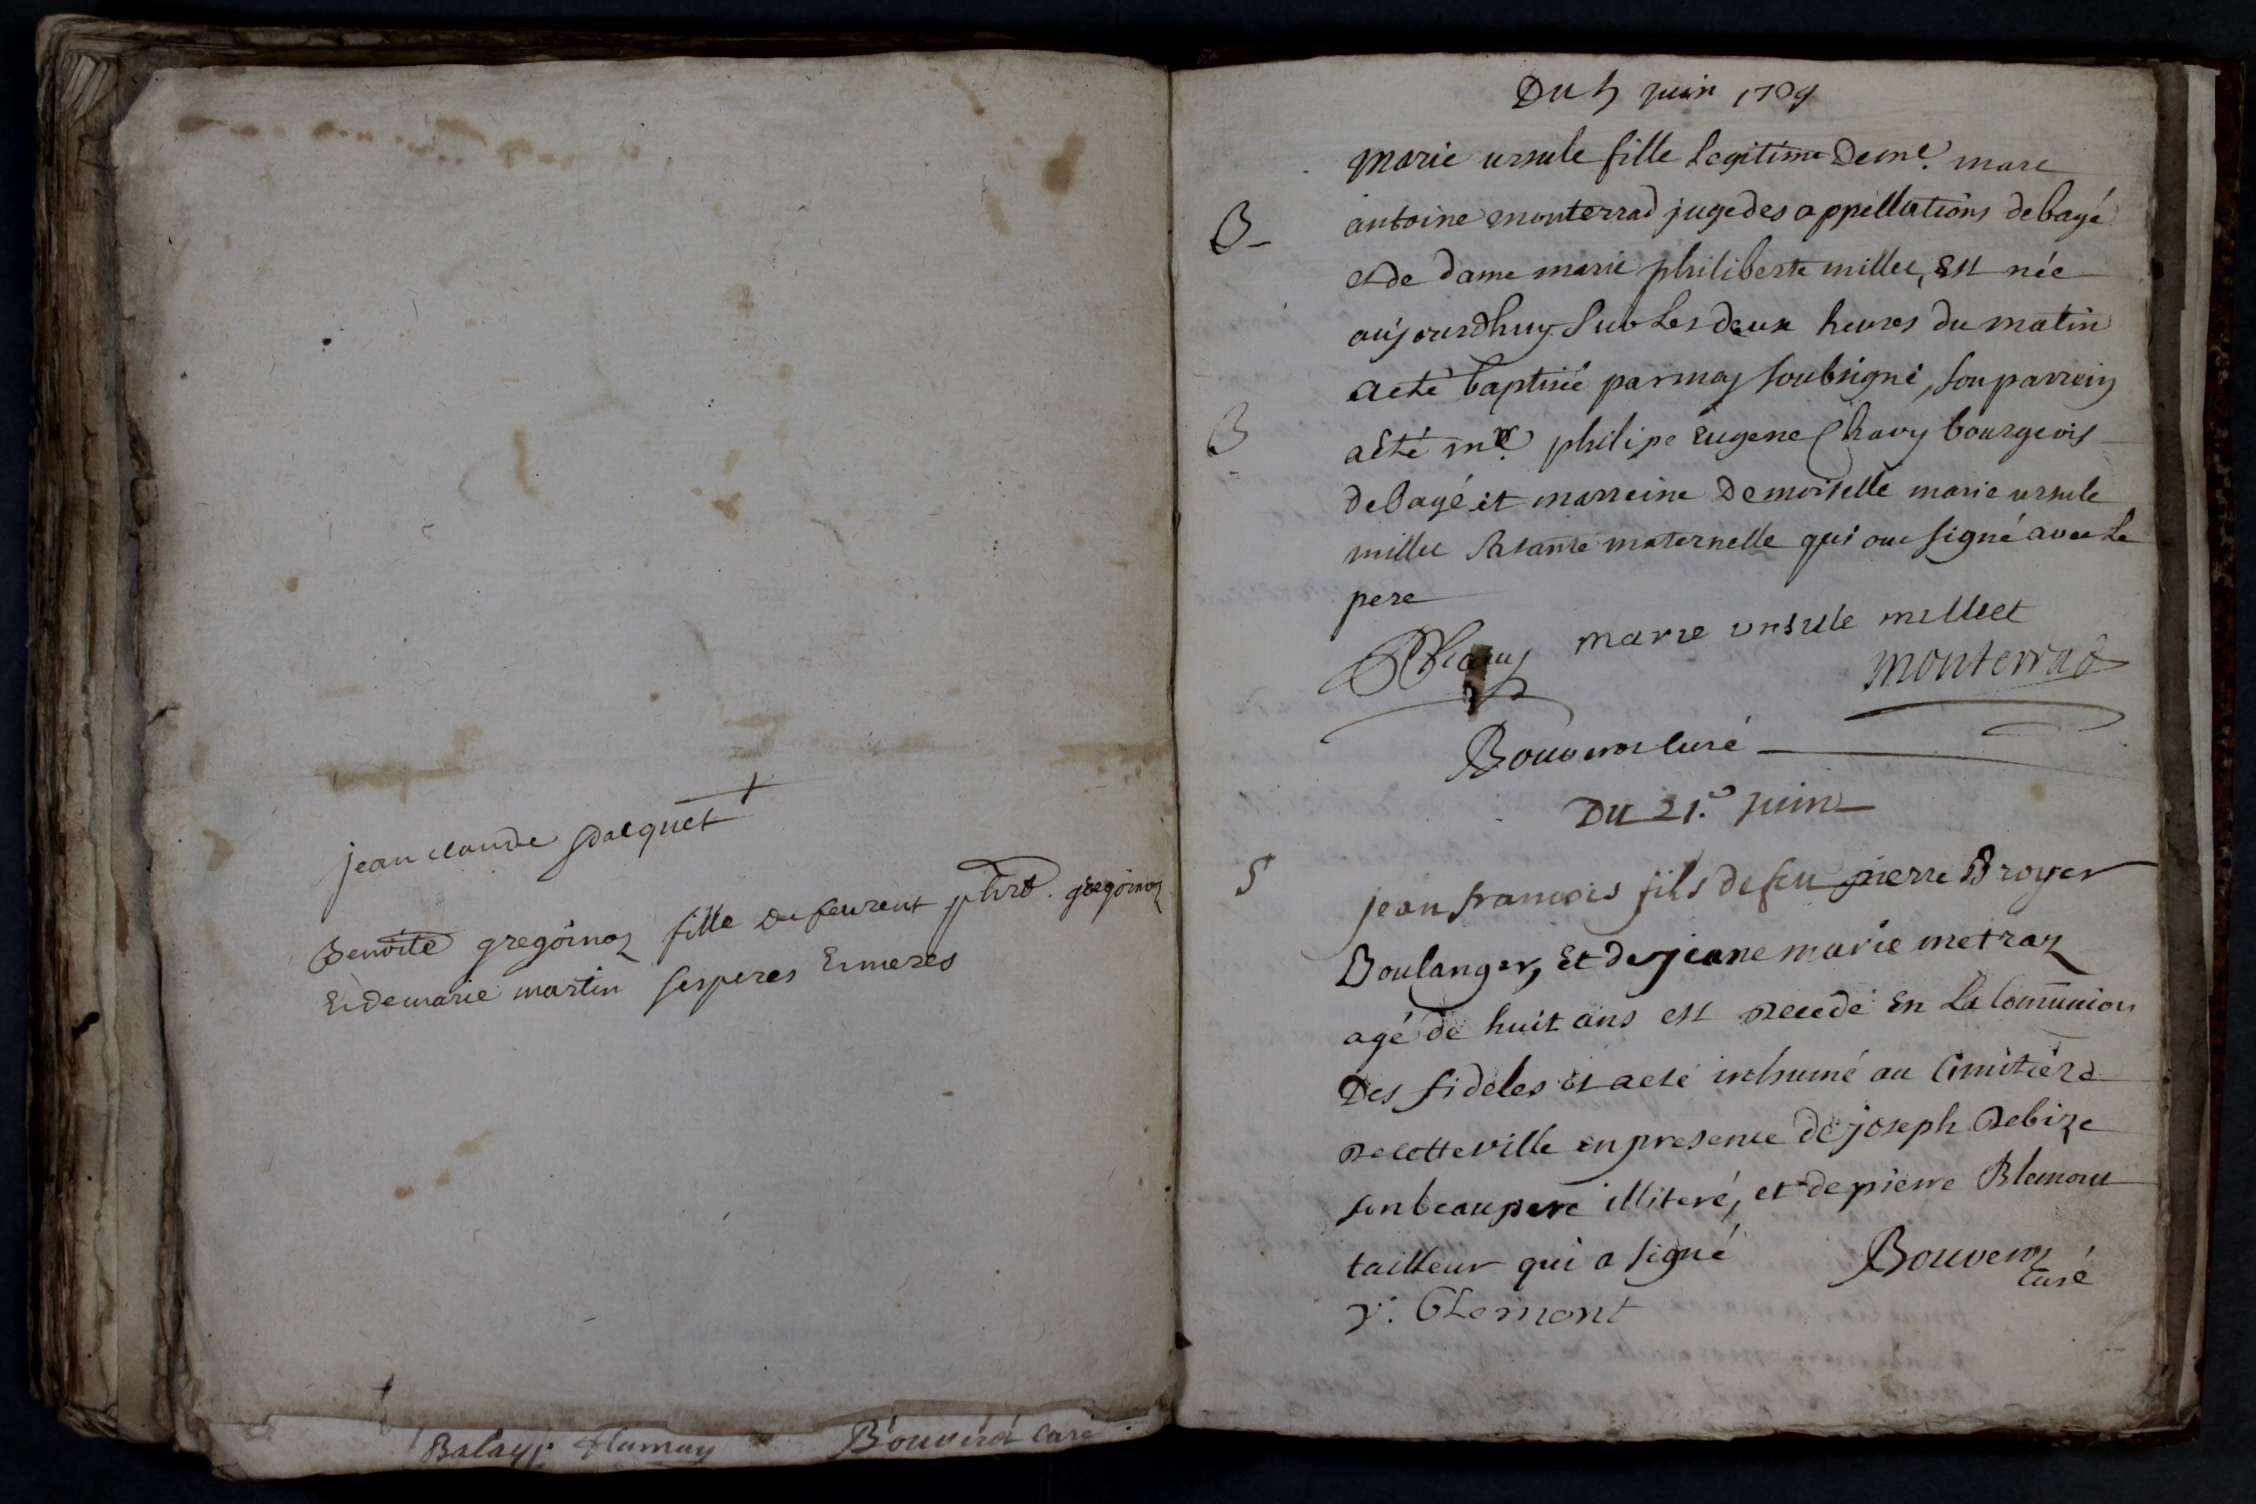 jean claude jdacquet
Benoite gregoinoz fille du feurent phird. gregoinoz
Et de marie martin ses peres Et meres
Balay Bouverot curé
Du 5 juin 1709
marie ursule fille legitime de me. marc
antoine monterrad juge des appellations de bagé
et de dame marie philiberte millet, est née
B
aujourdhuy sur les deux heures du matin
a eté baptisée par moy soubsigné, son parrein
a eté me. philipe eugene Chavy bourgeois
B
de bagé et marreine demoiselle marie ursule
millet sa tante maternelle qui ont signé avec le
pere
Chavy marie ursule milliet
monterrad
Bouverot curé
Du 21.e juin
S
jean francois fils de feu pierre Broyer
Boulanger, Et de jeane marie metraz
agé de huit ans est decedé En La Comūnion
Des fideles et a eté inhumé au Cimitiere
de cotteville en presence de joseph debize
son beaupere illiteré, et de pierre Blemont
tailleur qui a signé Bouverot
curé
Blemont